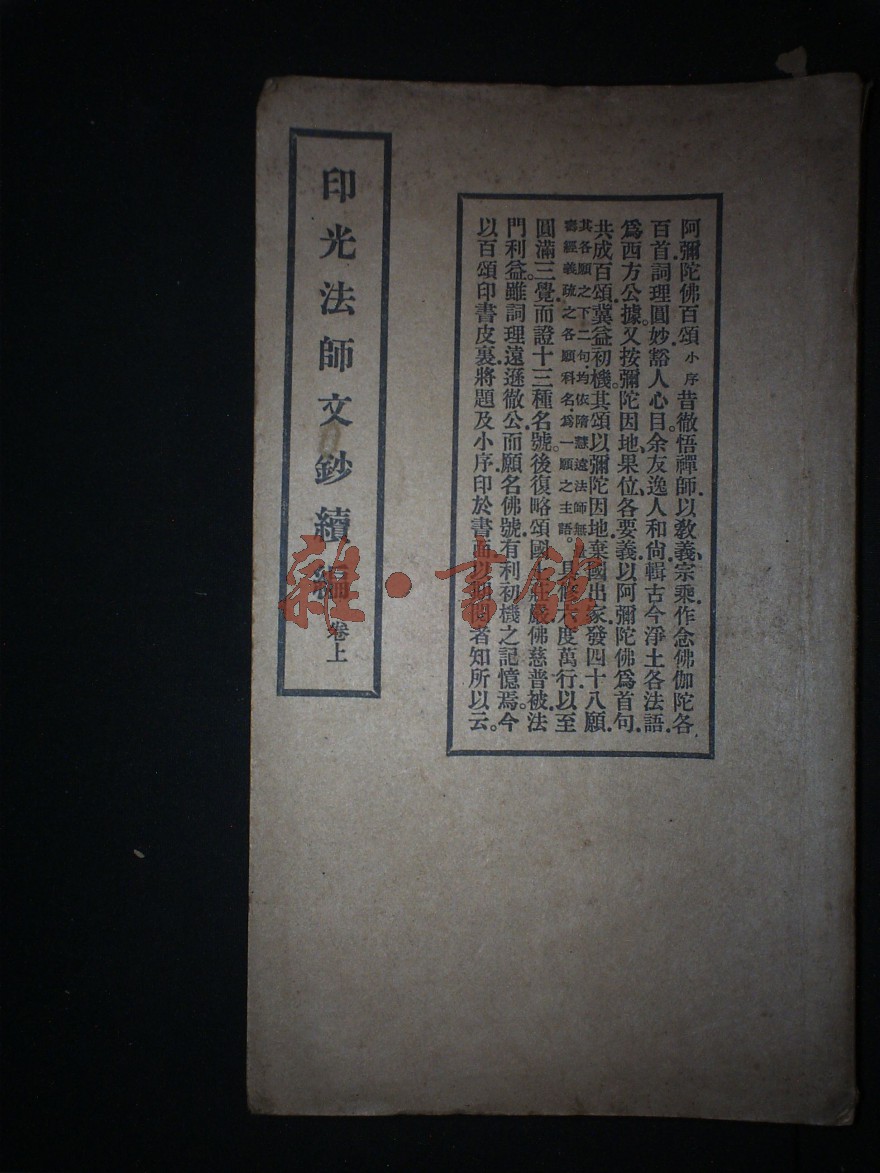 阿彌陀佛百頌 小序 昔徹悟禪師.以教義宗乘.作念佛伽陀各
百首.詞理圓妙.豁人心目.余友逸人和尚.輯古今淨土各法語.
爲西方公據.又按彌陀因地、果位、各要義.以阿彌陀佛爲首句.
共成百頌.冀益初機.其頌以彌陀因地.棄國出家.發四十八願.
其各願之下二句.均依隋慧遠法師無量
壽經義疏之各願科名.爲一願之主語。
具修六度萬行.以至
圓滿三覺.而證十三種名號.後復略頌國土莊嚴.佛慈普被.法
門利益.雖詞理遠遜徹公.而願名佛號.有利初機之記憶焉.今
以百頌印書皮裏.將題及小序.印於書面.以期閱者知所以云。
印光法師文鈔續編 卷上
雜·書館